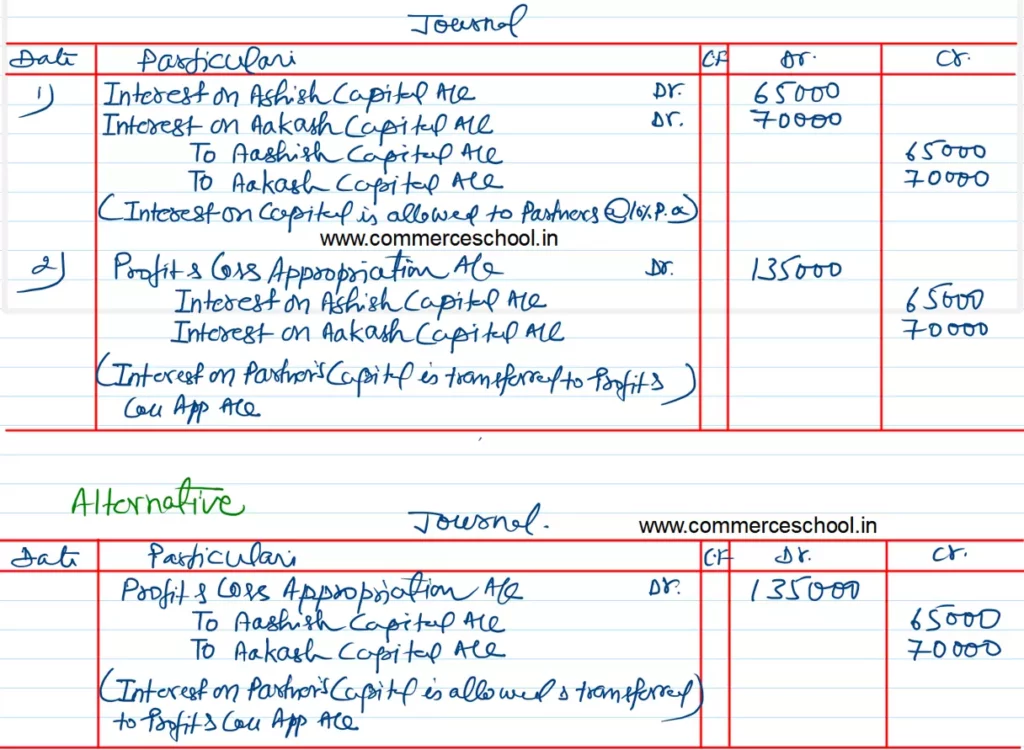 Journal
Date Particulars CF Dr. Cr.
1) Interest on Ashish Capital A/c Dr. 65000
Interest on Aakash Capital A/c Dr. 70000
To Aashish Capital A/c 65000
To Aakash Capital A/c 70000
(Interest on Capital is allowed to Partners @10% P.a)
www.commerceschool.in
2) Profit & Loss Appropriation A/c Dr. 135000
Interest on Ashish Capital A/c 65000
Interest on Aakash Capital A/c 70000
(Interest on Partner's Capital is transferred to Profit &
Loss App A/c
Alternative
Journal. www.commerceschool.in
Date Particulars CF Dr. Cr.
Profit & Loss Appropriation A/c Dr. 135000
To Aashish Capital A/c 65000
To Aakash Capital A/c 70000
(Interest on Partner's Capital is allowed & transferred)
to Profit & Loss App A/c